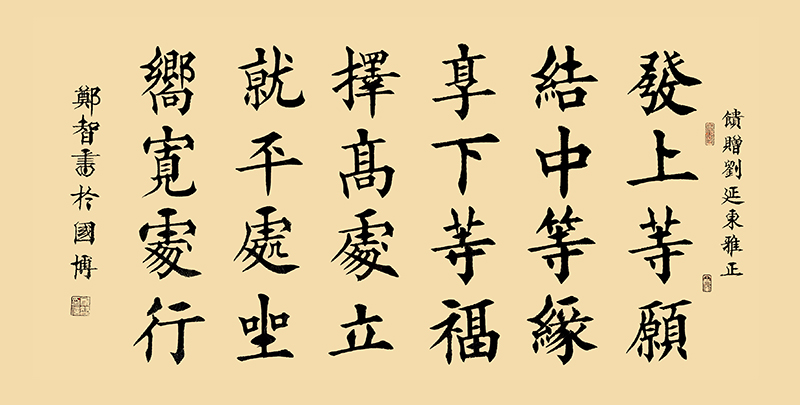 饋贈劉延東雅正
發上等願
結中等緣
享下等福
擇高處立
就平處坐
嚮寬處行
鄭智書於國博